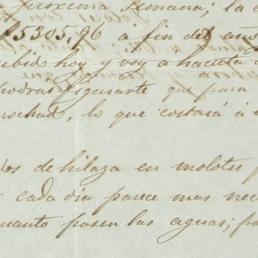 proxima semana; la
15305,96 á fin del año
recibid hoy y voy a
podras figurarte que para
, lo que costará á
dos de hilaza en molotes
cada dia parece mas
cuanto pasen las aguas;